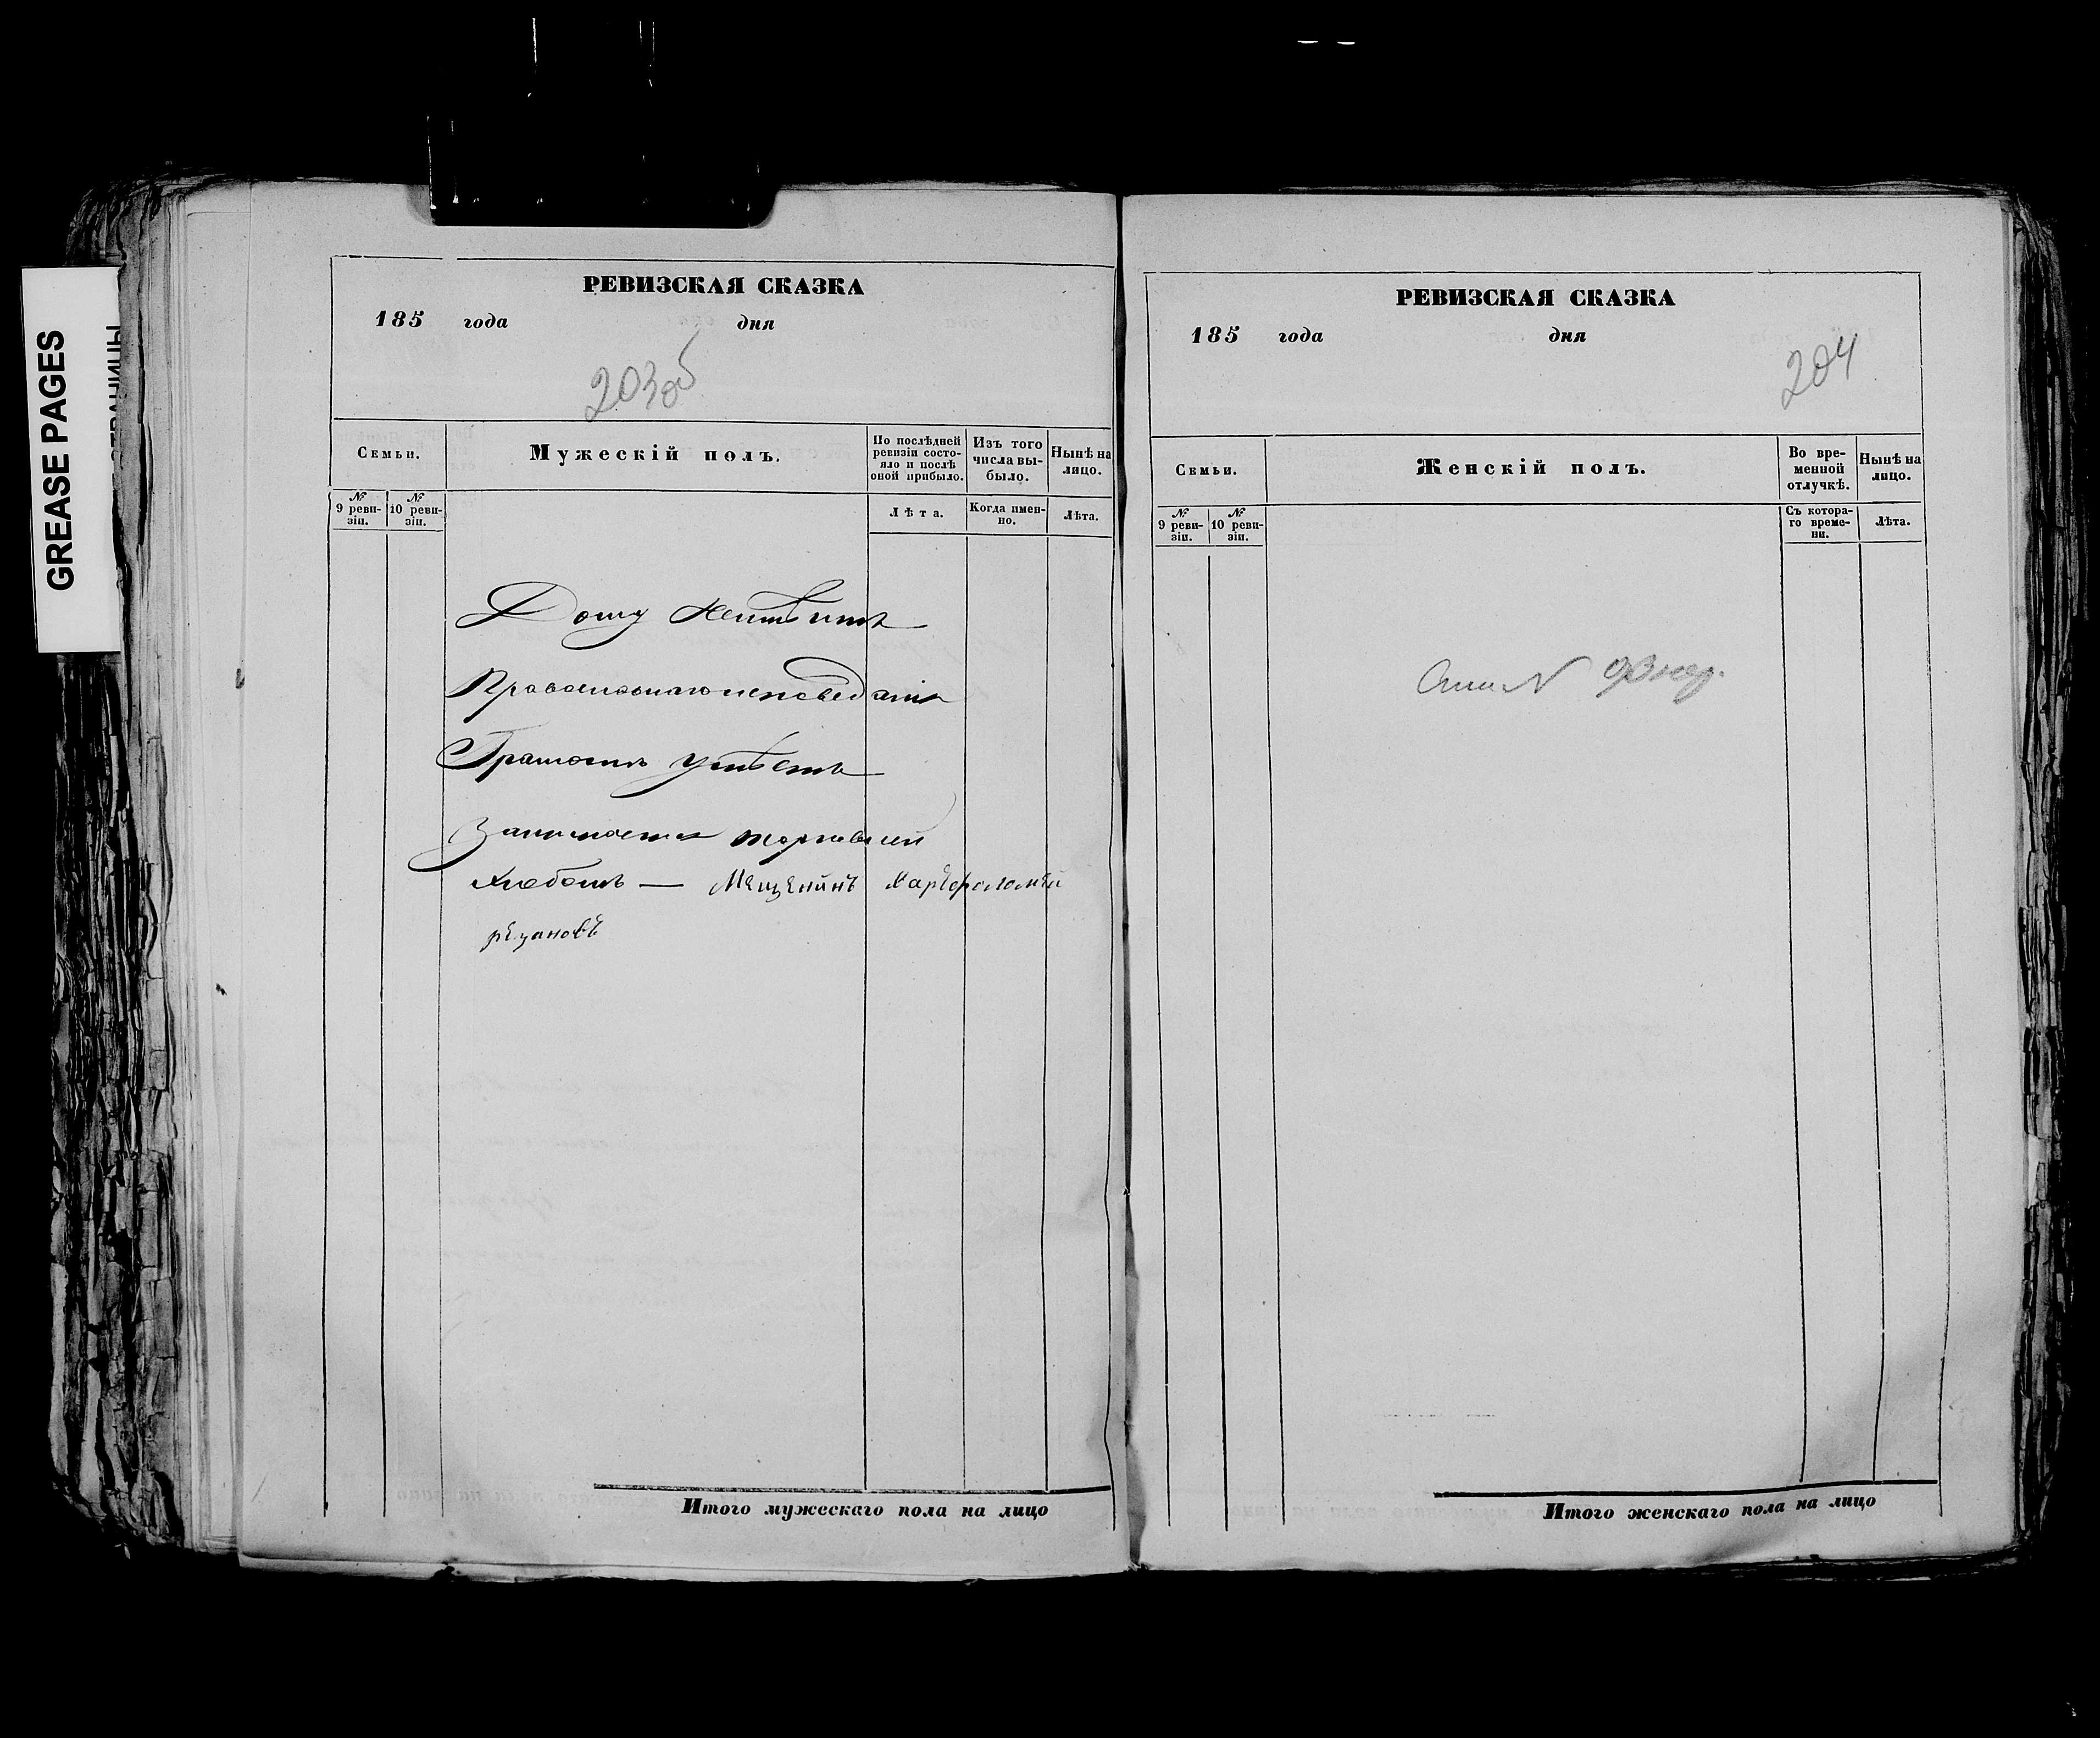 GREASE PAGES
СТРАНИЦЫ
РЕВИЗСКАЯ СКАЗКА
185 года дня
203об
Семьи.
Мужескій полъ.
По послѣдней ревизіи состояло и послѣ оной прибыло.
Изъ того числа выбыло.
Нынѣ на лицо.
№ 9 ревизіи.
№ 10 ревизіи.
Лѣта.
Когда именно.
Лѣта.
Дому неимѣитъ
Православнаго исповеданія
Грамотѣ умѣетъ
Занимается торговлей
Хлебомъ — Мещенинъ Харѳоломей
рѣзановъ
Итого мужескаго пола на лицо
РЕВИЗСКАЯ СКАЗКА
185 года дня
204
Семьи.
Женскій полъ.
Во временной отлучкѣ.
Нынѣ на лицо.
№ 9 ревизіи.
№ 10 ревизіи.
Съ котораго времени.
Лѣта.
Итого женскаго пола на лицо